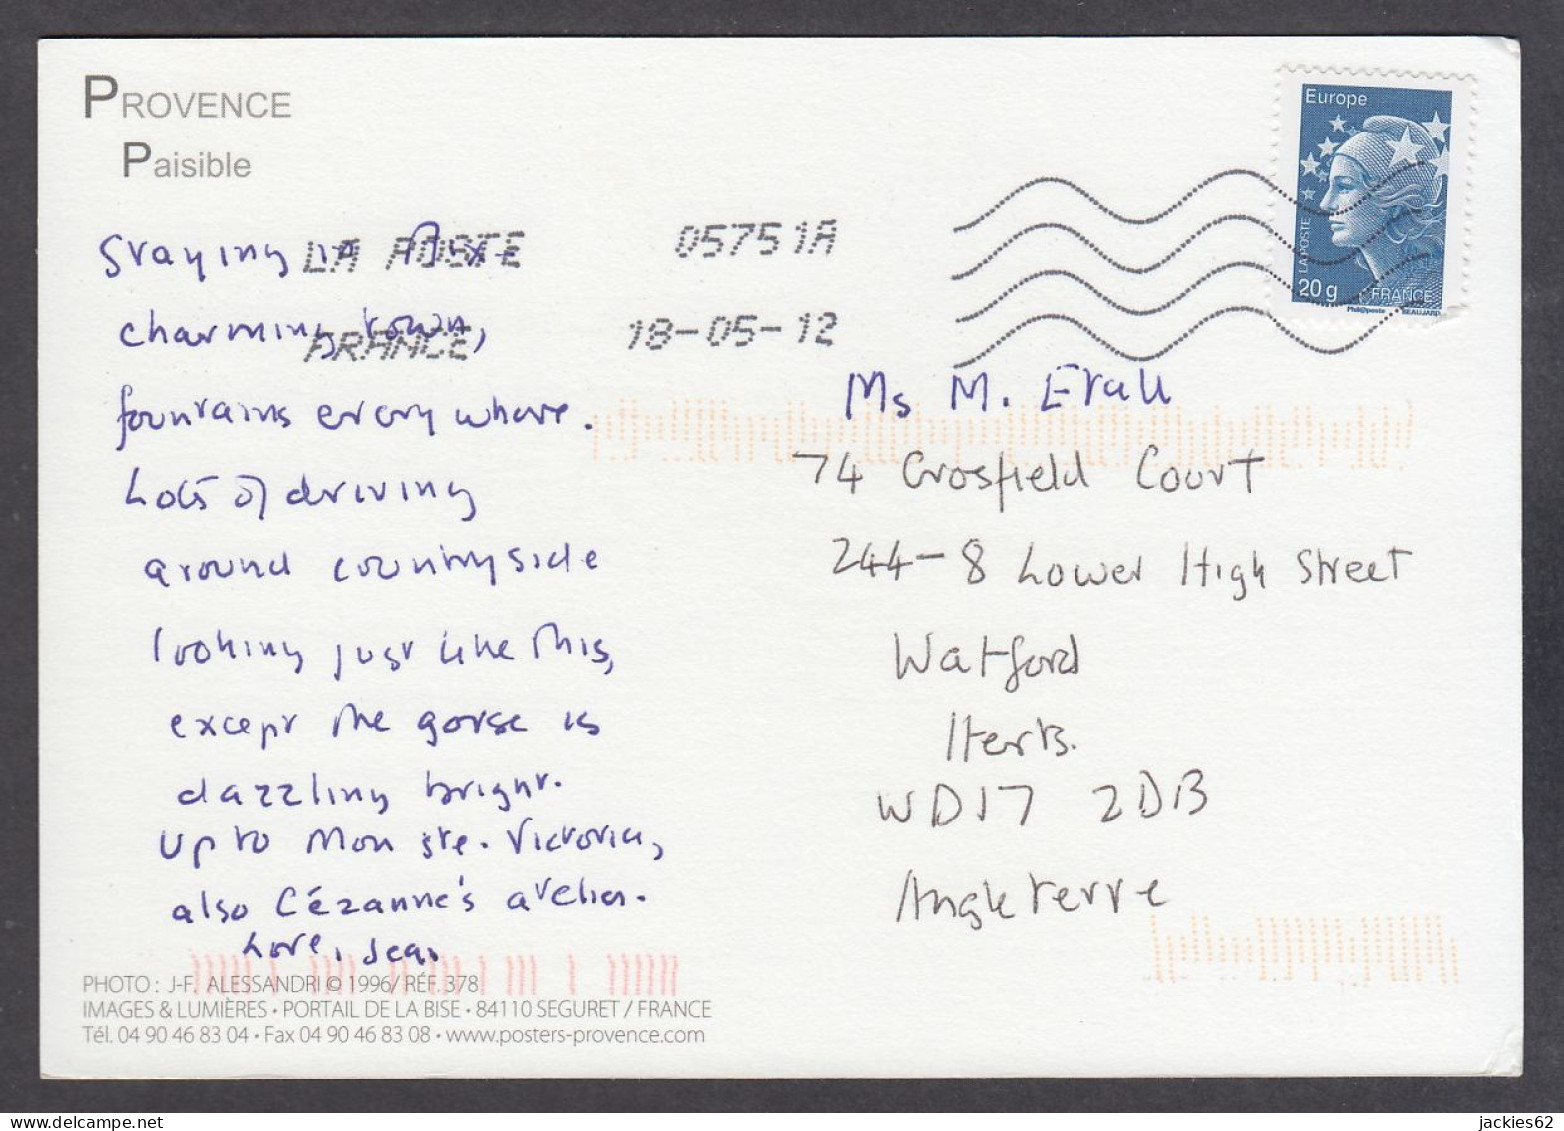 PROVENCE
Paisible
Europe
LA POSTE
20 g
FRANCE
Phil@poste
BEAUJARD
LA POSTE
05751A
FRANCE
18-05-12
Staying in Aix-
charming town,
fountains everywhere.
Lots of driving
around countryside
looking just like this,
except the gorse is
dazzling bright.
Up to Mon Ste. Victoria,
also Cézanne's atelier.
Love, Jean
Ms M.
74 Crosfield Court
244-8 Lower High Street
Watford
Herts.
WD17 2DB
Angleterre
PHOTO : J-F. ALESSANDRI © 1996/ RÉF. 378
IMAGES & LUMIÈRES • PORTAIL DE LA BISE • 84110 SEGURET / FRANCE
Tél. 04 90 46 83 04 • Fax 04 90 46 83 08 • www.posters-provence.com
jackies62